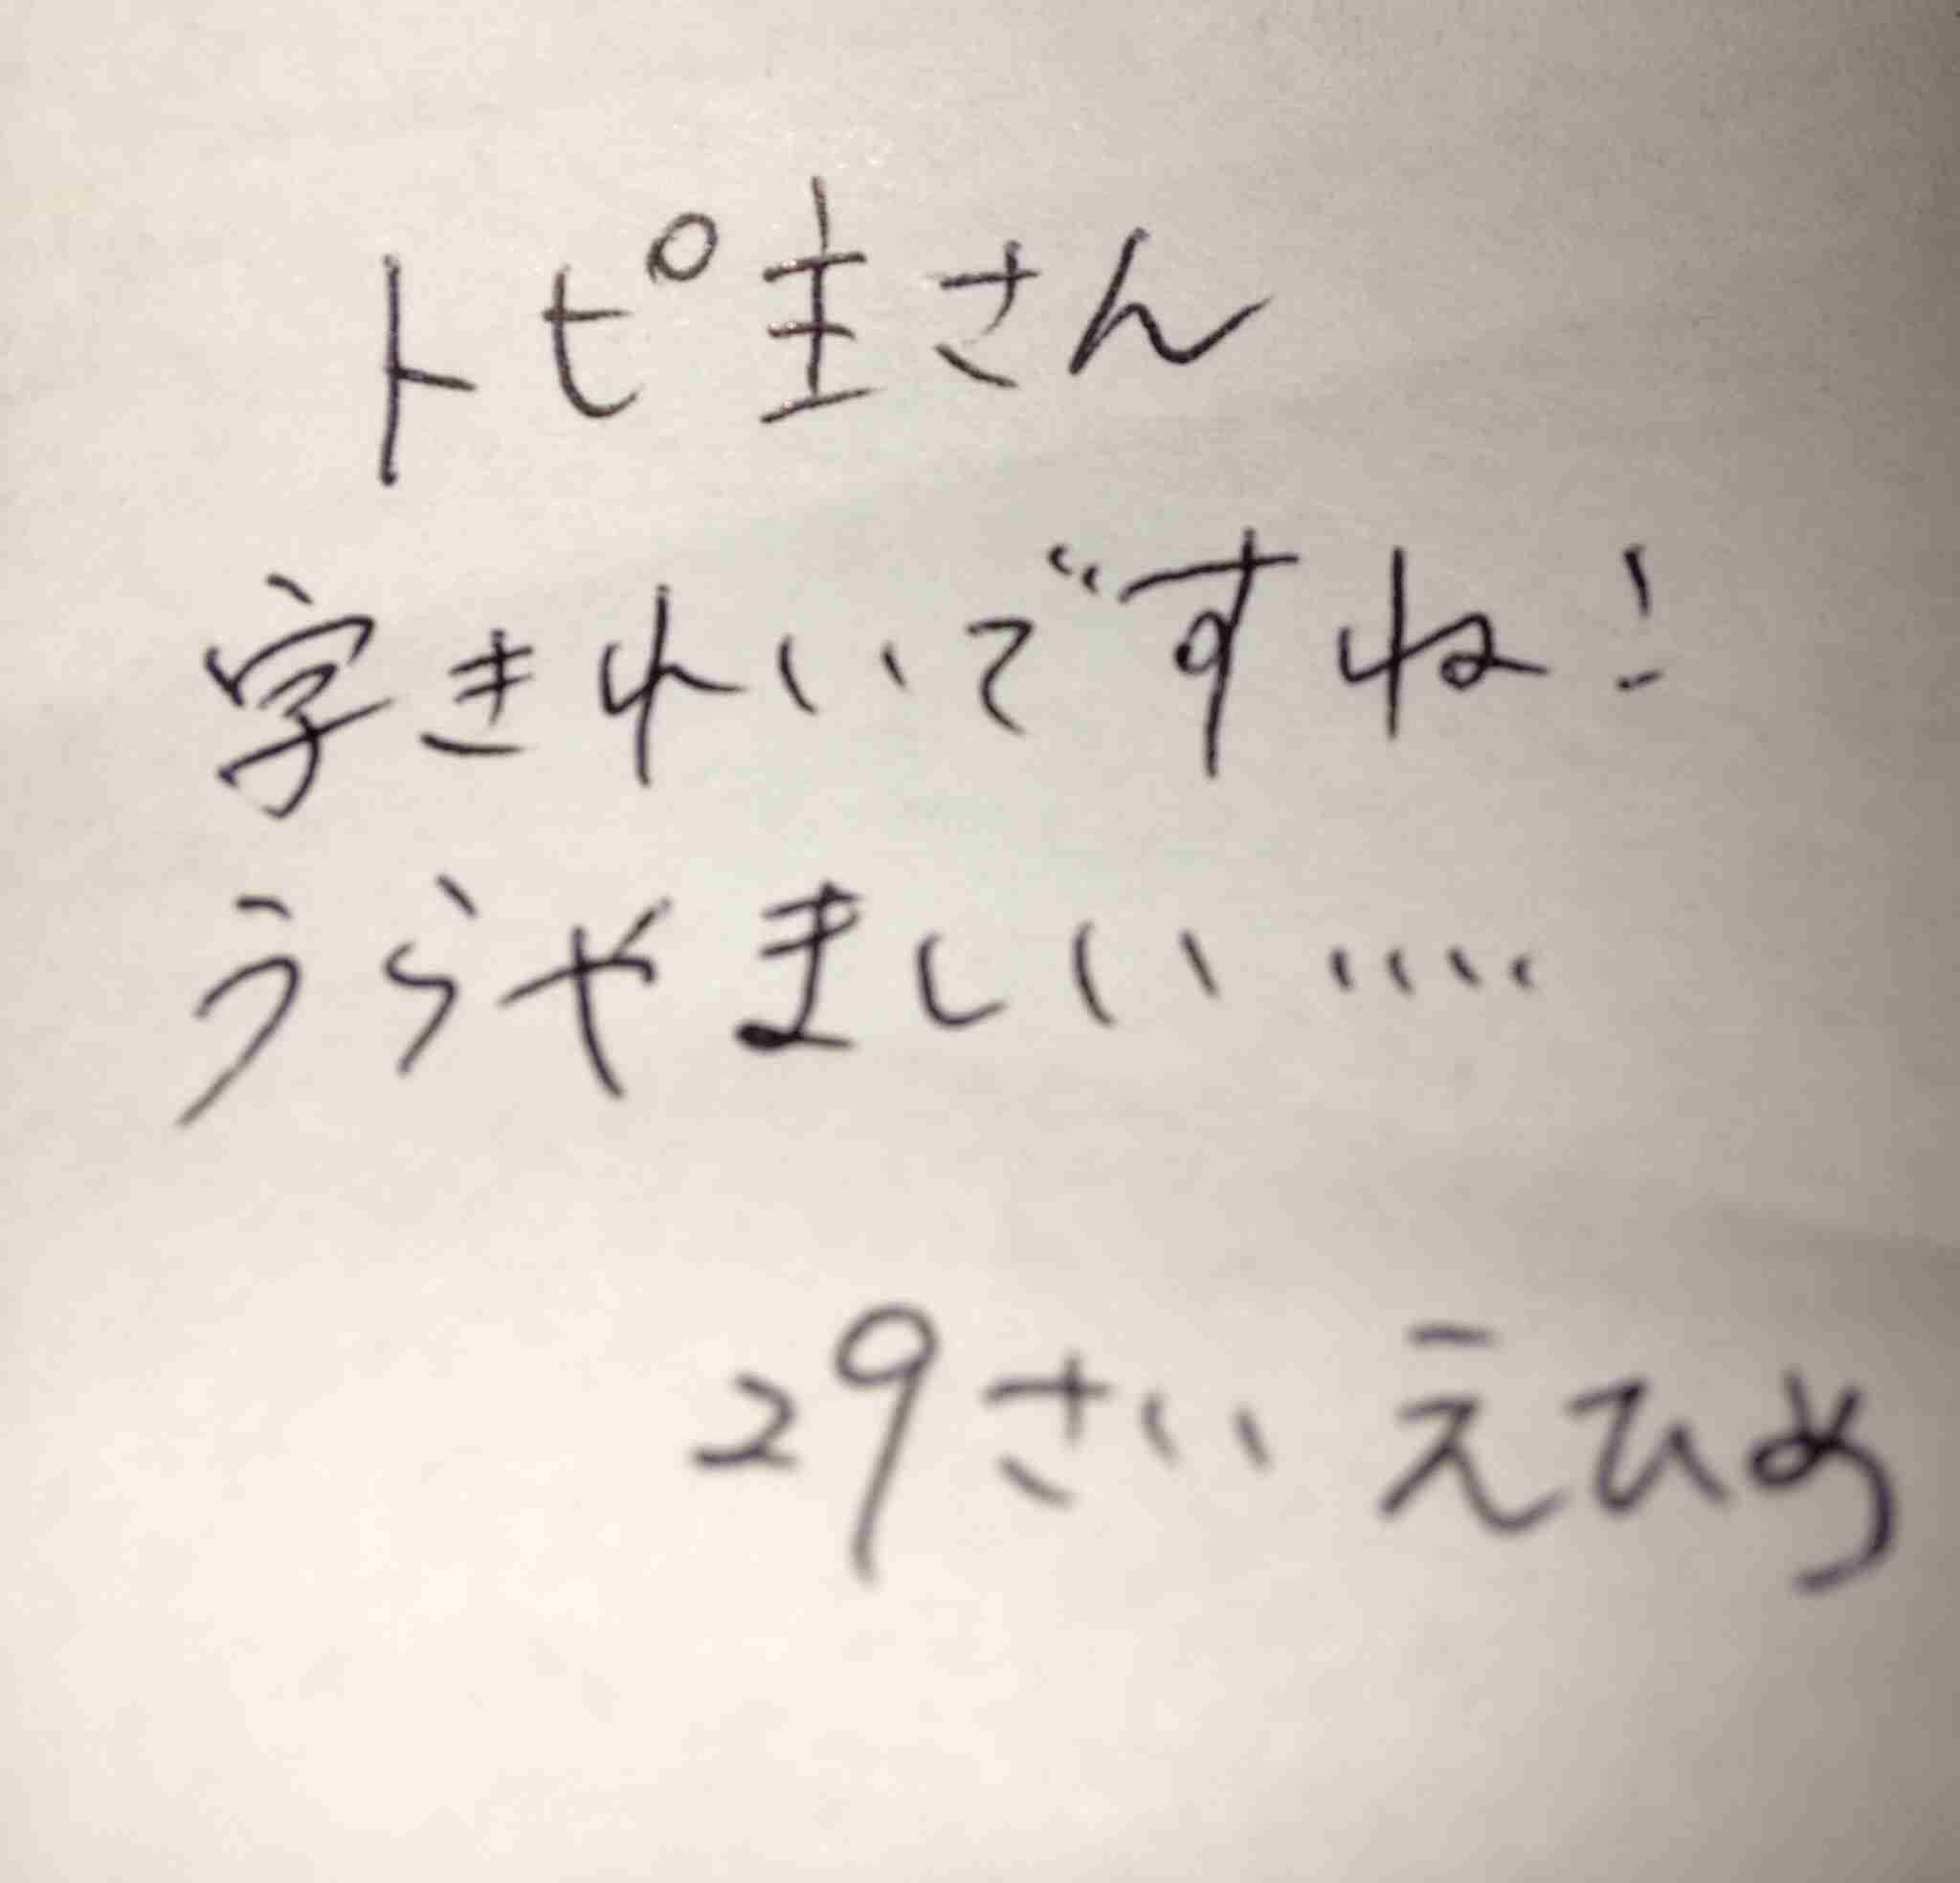 トピ主さん
字きれいですね!
うらやましい‥‥
29さい えひめ